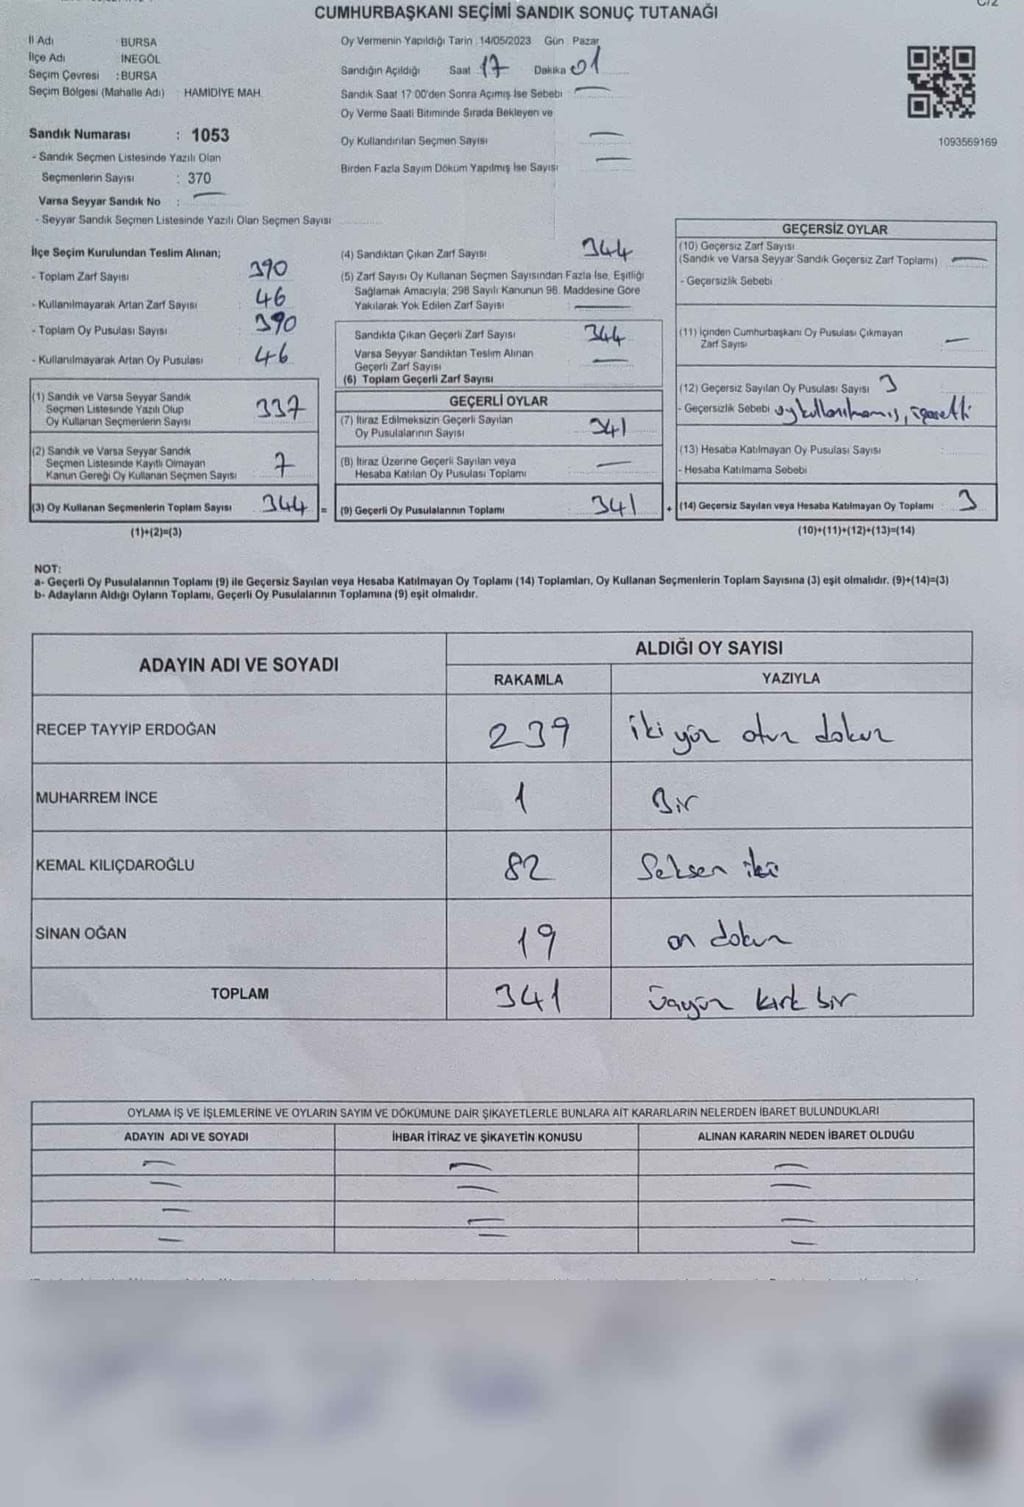 C/2
CUMHURBAŞKANI SEÇİMİ SANDIK SONUÇ TUTANAĞI
İl Adı BURSA
İlçe Adı İNEGÖL
Seçim Çevresi : BURSA
Seçim Bölgesi (Mahalle Adı) HAMIDİYE MAH.
Sandık Numarası : 1053
- Sandık Seçmen Listesinde Yazılı Olan
Seçmenlerin Sayısı : 370
Varsa Seyyar Sandık No : —
- Seyyar Sandık Seçmen Listesinde Yazılı Olan Seçmen Sayısı
Oy Vermenin Yapıldığı Tarih 14/05/2023 Gün Pazar
Sandığın Açıldığı Saat 17 Dakika 01
Sandık Saat 17:00'den Sonra Açılmış İse Sebebi —
Oy Verme Saati Bitiminde Sırada Bekleyen ve
Oy Kullandırılan Seçmen Sayısı —
Birden Fazla Sayım Döküm Yapılmış İse Sayısı —
1093569169
İlçe Seçim Kurulundan Teslim Alınan;
- Toplam Zarf Sayısı 390
- Kullanılmayarak Artan Zarf Sayısı 46
- Toplam Oy Pusulası Sayısı 390
- Kullanılmayarak Artan Oy Pusulası 46
(1) Sandık ve Varsa Seyyar Sandık
Seçmen Listesinde Yazılı Olup
Oy Kullanan Seçmenlerin Sayısı 337
(2) Sandık ve Varsa Seyyar Sandık
Seçmen Listesinde Kayıtlı Olmayan
Kanun Gereği Oy Kullanan Seçmen Sayısı 7
(3) Oy Kullanan Seçmenlerin Toplam Sayısı 344 =
(1)+(2)=(3)
(4) Sandıktan Çıkan Zarf Sayısı 344
(5) Zarf Sayısı Oy Kullanan Seçmen Sayısından Fazla İse, Eşitliği
Sağlamak Amacıyla; 298 Sayılı Kanunun 98. Maddesine Göre
Yakılarak Yok Edilen Zarf Sayısı —
Sandıkta Çıkan Geçerli Zarf Sayısı 344
Varsa Seyyar Sandıktan Teslim Alınan
Geçerli Zarf Sayısı —
(6) Toplam Geçerli Zarf Sayısı
GEÇERLİ OYLAR
(7) İtiraz Edilmeksizin Geçerli Sayılan
Oy Pusulalarının Sayısı 341
(8) İtiraz Üzerine Geçerli Sayılan veya
Hesaba Katılan Oy Pusulası Toplamı —
(9) Geçerli Oy Pusulalarının Toplamı 341 +
GEÇERSİZ OYLAR
(10) Geçersiz Zarf Sayısı
(Sandık ve Varsa Seyyar Sandık Geçersiz Zarf Toplamı) —
- Geçersizlik Sebebi
(11) İçinden Cumhurbaşkanı Oy Pusulası Çıkmayan
Zarf Sayısı —
(12) Geçersiz Sayılan Oy Pusulası Sayısı 3
- Geçersizlik Sebebi oy kullanılmamış, işaretli
(13) Hesaba Katılmayan Oy Pusulası Sayısı
- Hesaba Katılmama Sebebi
(14) Geçersiz Sayılan veya Hesaba Katılmayan Oy Toplamı : 3
(10)+(11)+(12)+(13)=(14)
NOT:
a- Geçerli Oy Pusulalarının Toplamı (9) ile Geçersiz Sayılan veya Hesaba Katılmayan Oy Toplamı (14) Toplamları, Oy Kullanan Seçmenlerin Toplam Sayısına (3) eşit olmalıdır. (9)+(14)=(3)
b- Adayların Aldığı Oyların Toplamı, Geçerli Oy Pusulalarının Toplamına (9) eşit olmalıdır.
ADAYIN ADI VE SOYADI ALDIĞI OY SAYISI
RAKAMLA YAZIYLA
RECEP TAYYİP ERDOĞAN 239 iki yüz otuz dokuz
MUHARREM İNCE 1 Bir
KEMAL KILIÇDAROĞLU 82 Seksen iki
SİNAN OĞAN 19 on dokuz
TOPLAM 341 üçyüz kırk bir
OYLAMA İŞ VE İŞLEMLERİNE VE OYLARIN SAYIM VE DÖKÜMÜNE DAİR ŞİKAYETLERLE BUNLARA AİT KARARLARIN NELERDEN İBARET BULUNDUKLARI
ADAYIN ADI VE SOYADI İHBAR İTİRAZ VE ŞİKAYETİN KONUSU ALINAN KARARIN NEDEN İBARET OLDUĞU